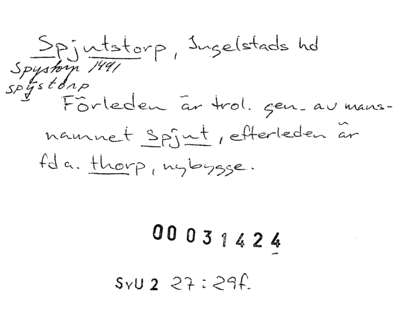 Spjutstorp, Ingelstads hd
Spystorp 1491
spystorp
Förleden är trol. gen. av mans-
namnet Spjut, efterleden är
fda. thorp, nybygge.
00031424
SvU 2 27:29f.